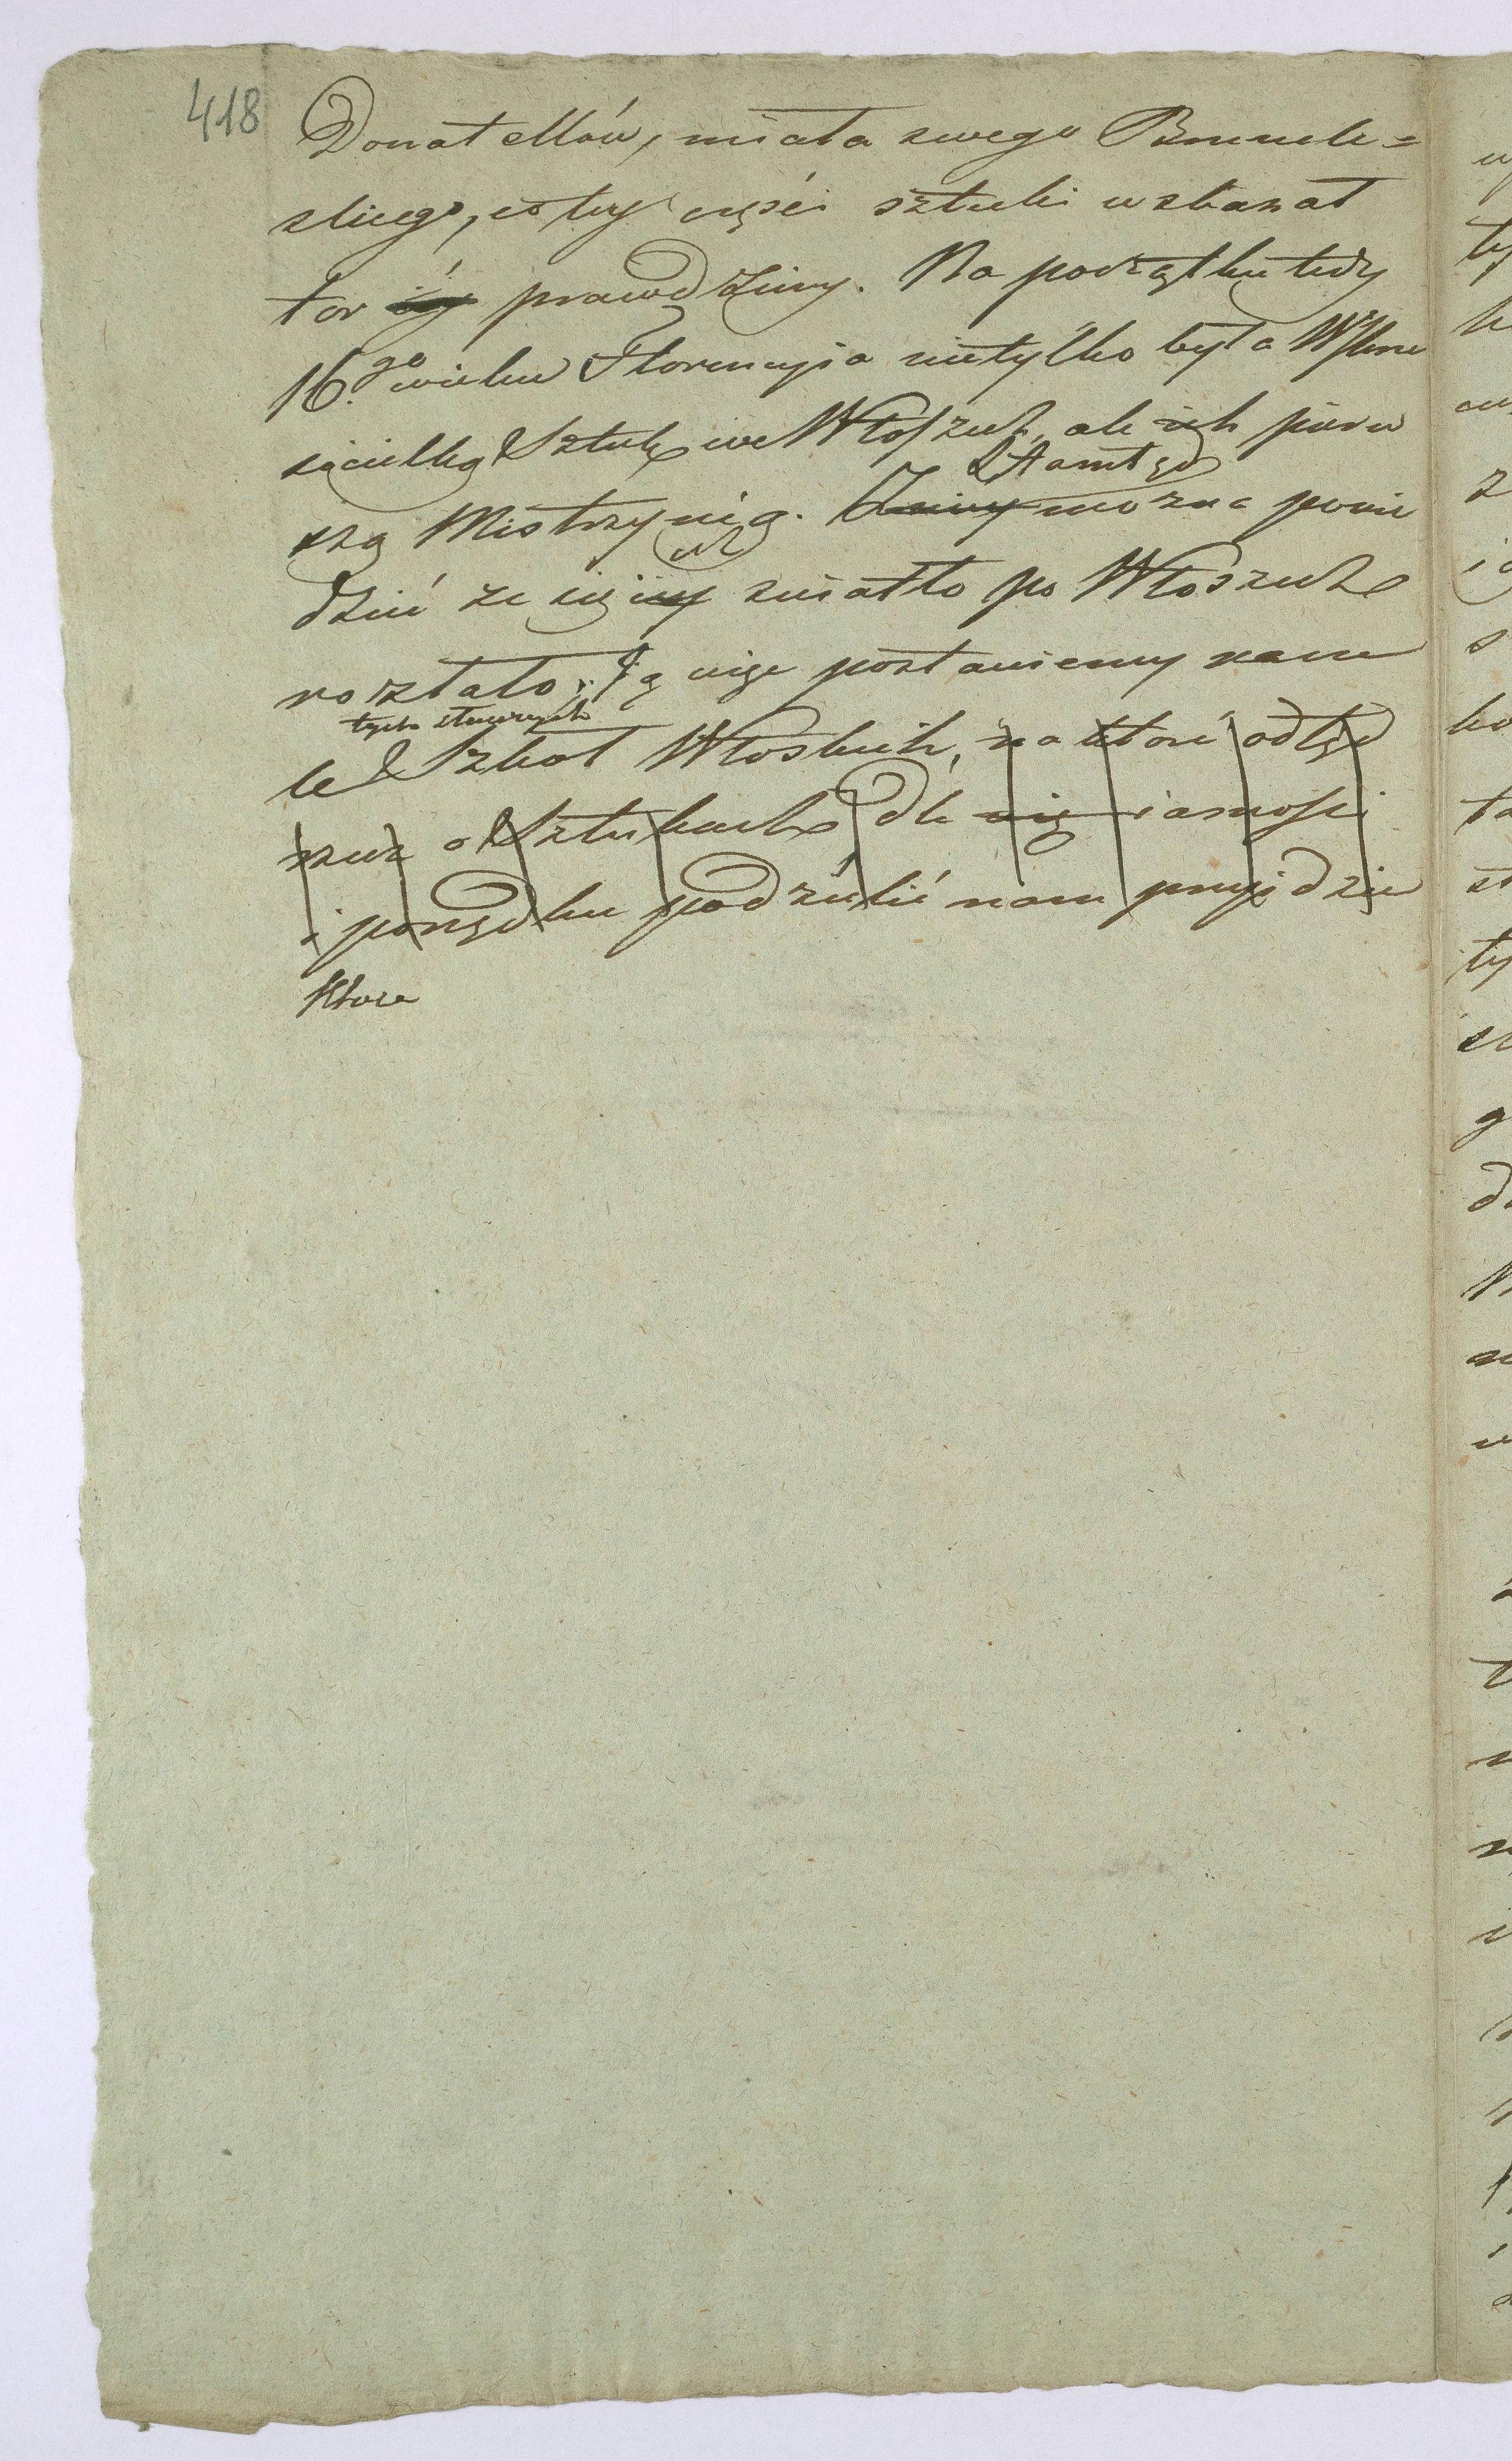 418
Donatellów, miała swego Brunele=
skiego, co tey części sztuki wskazał
tor prawdziwy. Na początku tedy
16.go wieku Florencyia nietylko była Wskrze
sicielką Sztuk we Włoszech, ale ich pierw
szą Mistrzynią. Ztamtąd można powie
dzieć że się ich światło po Włoszech
rozstało. Tą więc postawiemy na cze
le tych sławnych Szkół Włoskich, na które odtąd
rzecz o Sztukach dla iasności
i porządku podzielić nam przyidzie
które